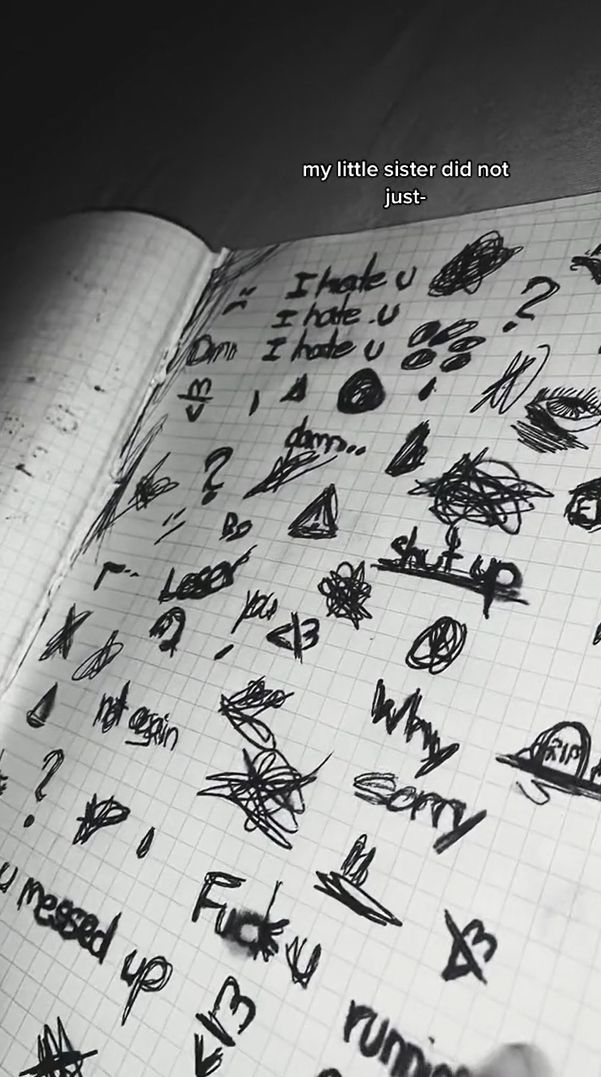 my little sister did not
just-
I hate u
I hate u
?
Dmn I hate u
<3
damn..
?
Bo
shut up
Loser
you
?
<3
not again
Why
RIP
?
Sorry
u messed up
Fuck u
<3
<3